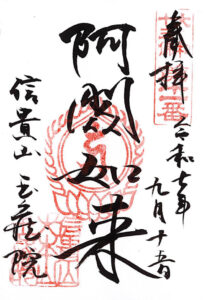 奉拝
令和七年九月十一日
阿閦如来
信貴山 玉蔵院